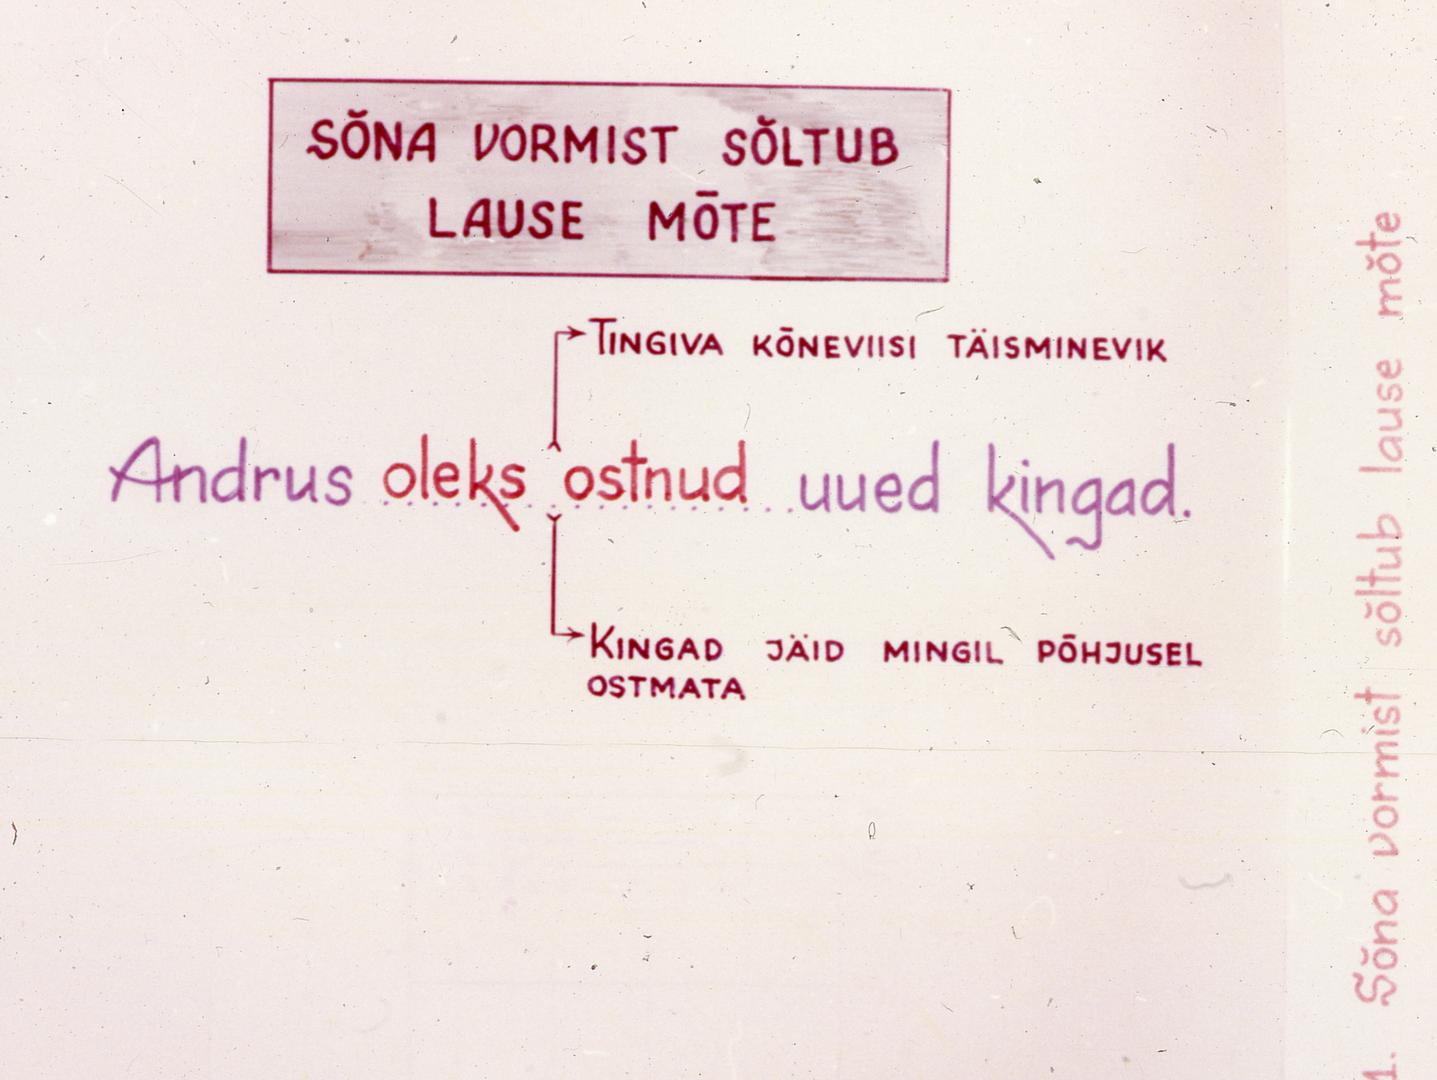 SÕNA VORMIST SÕLTUB
LAUSE MÕTE
TINGIVA KÕNEVIISI TÄISMINEVIK
Andrus oleks ostnud uued kingad.
KINGAD JÄID MINGIL PÕHJUSEL
OSTMATA
1. Sõna vormist sõltub lause mõte